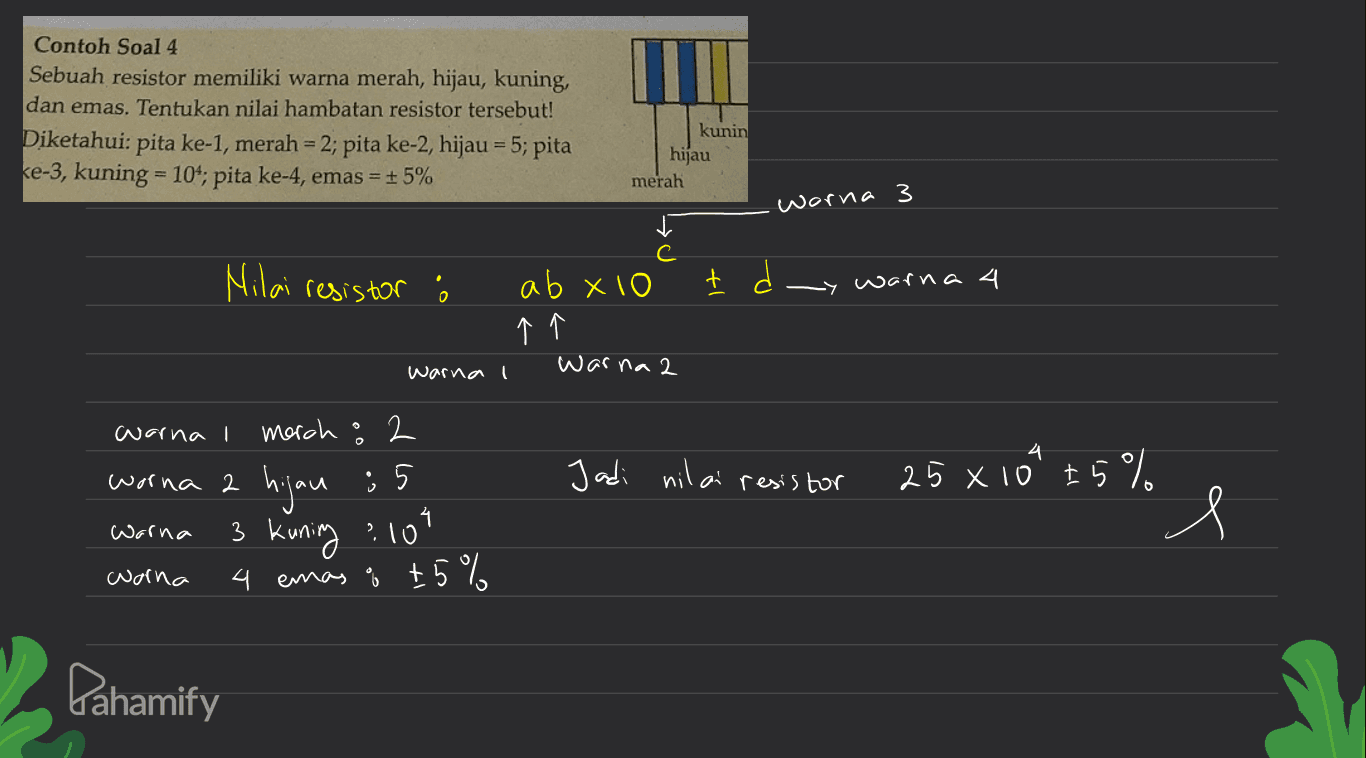 Contoh Soal 4
Sebuah resistor memiliki warna merah, hijau, kuning,
dan emas. Tentukan nilai hambatan resistor tersebut!
Diketahui: pita ke-1, merah = 2; pita ke-2, hijau = 5; pita
ke-3, kuning = 10⁴; pita ke-4, emas = ± 5%
kunin
hijau
merah
warna 3
Nilai resistor : ab x 10ᶜ ± d → warna 4
↑ ↑
warna 1 warna 2
warna 1 merah : 2
warna 2 hijau : 5
warna 3 kuning : 10⁴
warna 4 emas : ±5%
Jadi nilai resistor 25 x 10⁴ ±5%
Pahamify